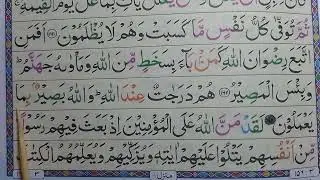 ثُمَّ تُوَفّٰى كُلُّ نَفْسٍ مَّا كَسَبَتْ وَهُمْ لَا يُظْلَمُوْنَ ﴿۱۶۱﴾ اَفَمَنِ
اتَّبَعَ رِضْوَانَ اللّٰهِ كَمَنْۢ بَآءَ بِسَخَطٍ مِّنَ اللّٰهِ وَمَاْوٰىهُ جَهَنَّمُ ؕ
وَبِئْسَ الْمَصِيْرُ ﴿۱۶۲﴾ هُمْ دَرَجٰتٌ عِنْدَ اللّٰهِ ؕ وَاللّٰهُ بَصِيْرٌۢ بِمَا
يَعْمَلُوْنَ ﴿۱۶۳﴾ لَقَدْ مَنَّ اللّٰهُ عَلَى الْمُؤْمِنِيْنَ اِذْ بَعَثَ فِيْهِمْ رَسُوْلًا
مِّنْ اَنْفُسِهِمْ يَتْلُوْا عَلَيْهِمْ اٰيٰتِهٖ وَيُزَكِّيْهِمْ وَيُعَلِّمُهُمُ الْكِتٰبَ